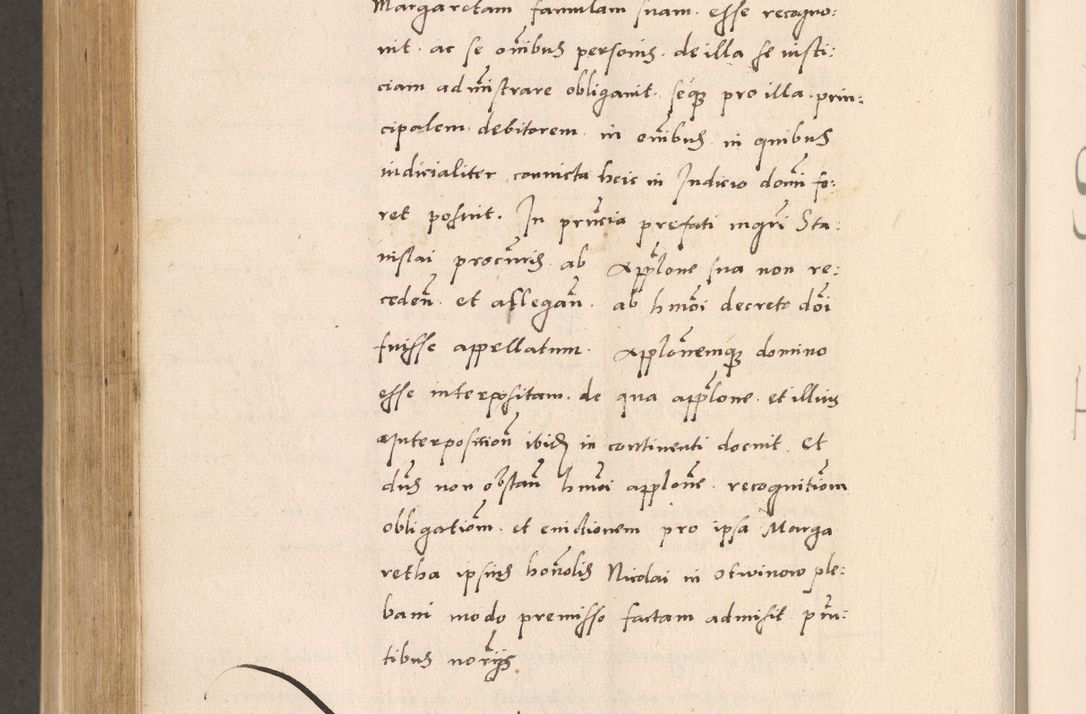 Margaretam famulam suam esse recogno:
uit ac se om̄ibus personis de illa se iusti:
ciam admīstrare obligauit seq3 pro illa prin:
cipalem debitorem in om̄ibus in quibus
iudicialiter conuicta heic in Judicio domī fo:
ret posuit. In pn̄cia prefati mgr̄i Sta:
nislai procūris ab Appl̄one sua non re:
ceden̄ et allegan̄ ab hmōi decreto dōi
fuisse appellatum Appl̄onemq3 domino
esse interpositam de qua appl̄one et illius
Interposition̄ ibid in continenti docuit Et
dn̄s non obstan̄ hmōi applōne recognitiōem
obligatiōm et euictionem pro ipsa Marga
retha ipsius honōlis Nicolai in Otwinow ple:
bani modo premisso factam admisit pn̄:
tibus nor̄ijs